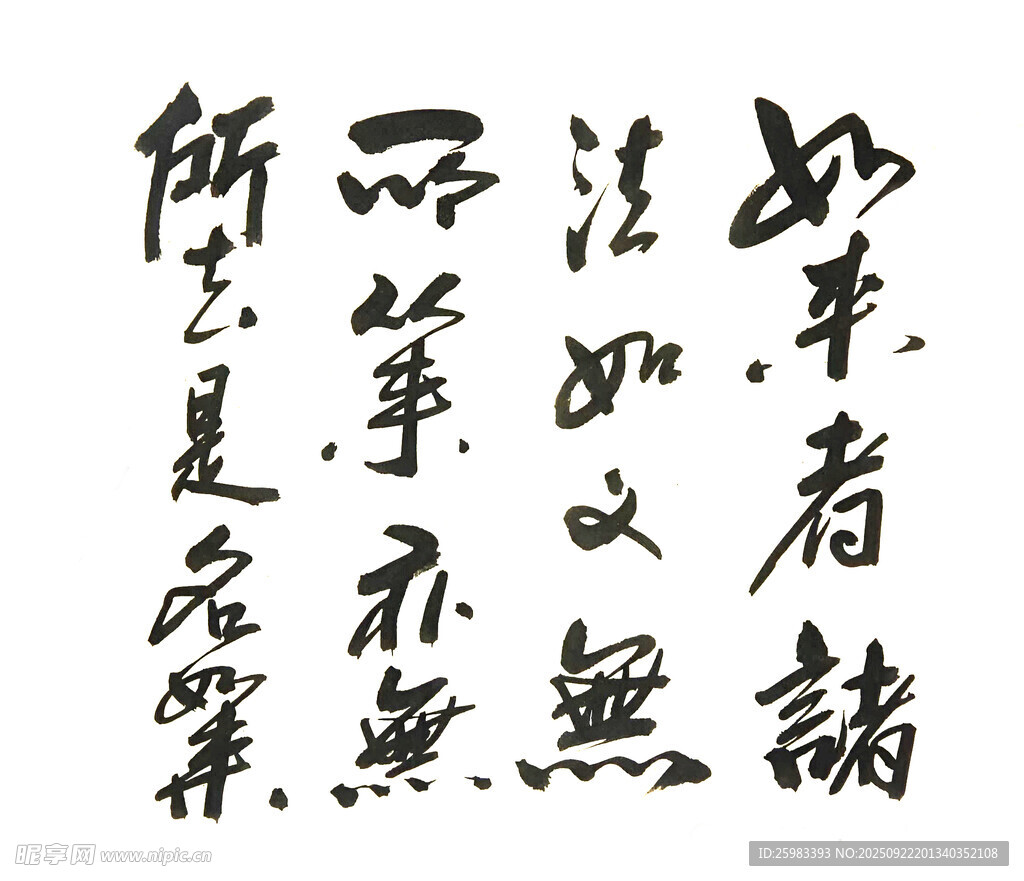 如来者諸
法如义無
所从来亦無
所去是名如来
昵享网 www.nipic.cn
ID:25983393 NO:20250922201340352108